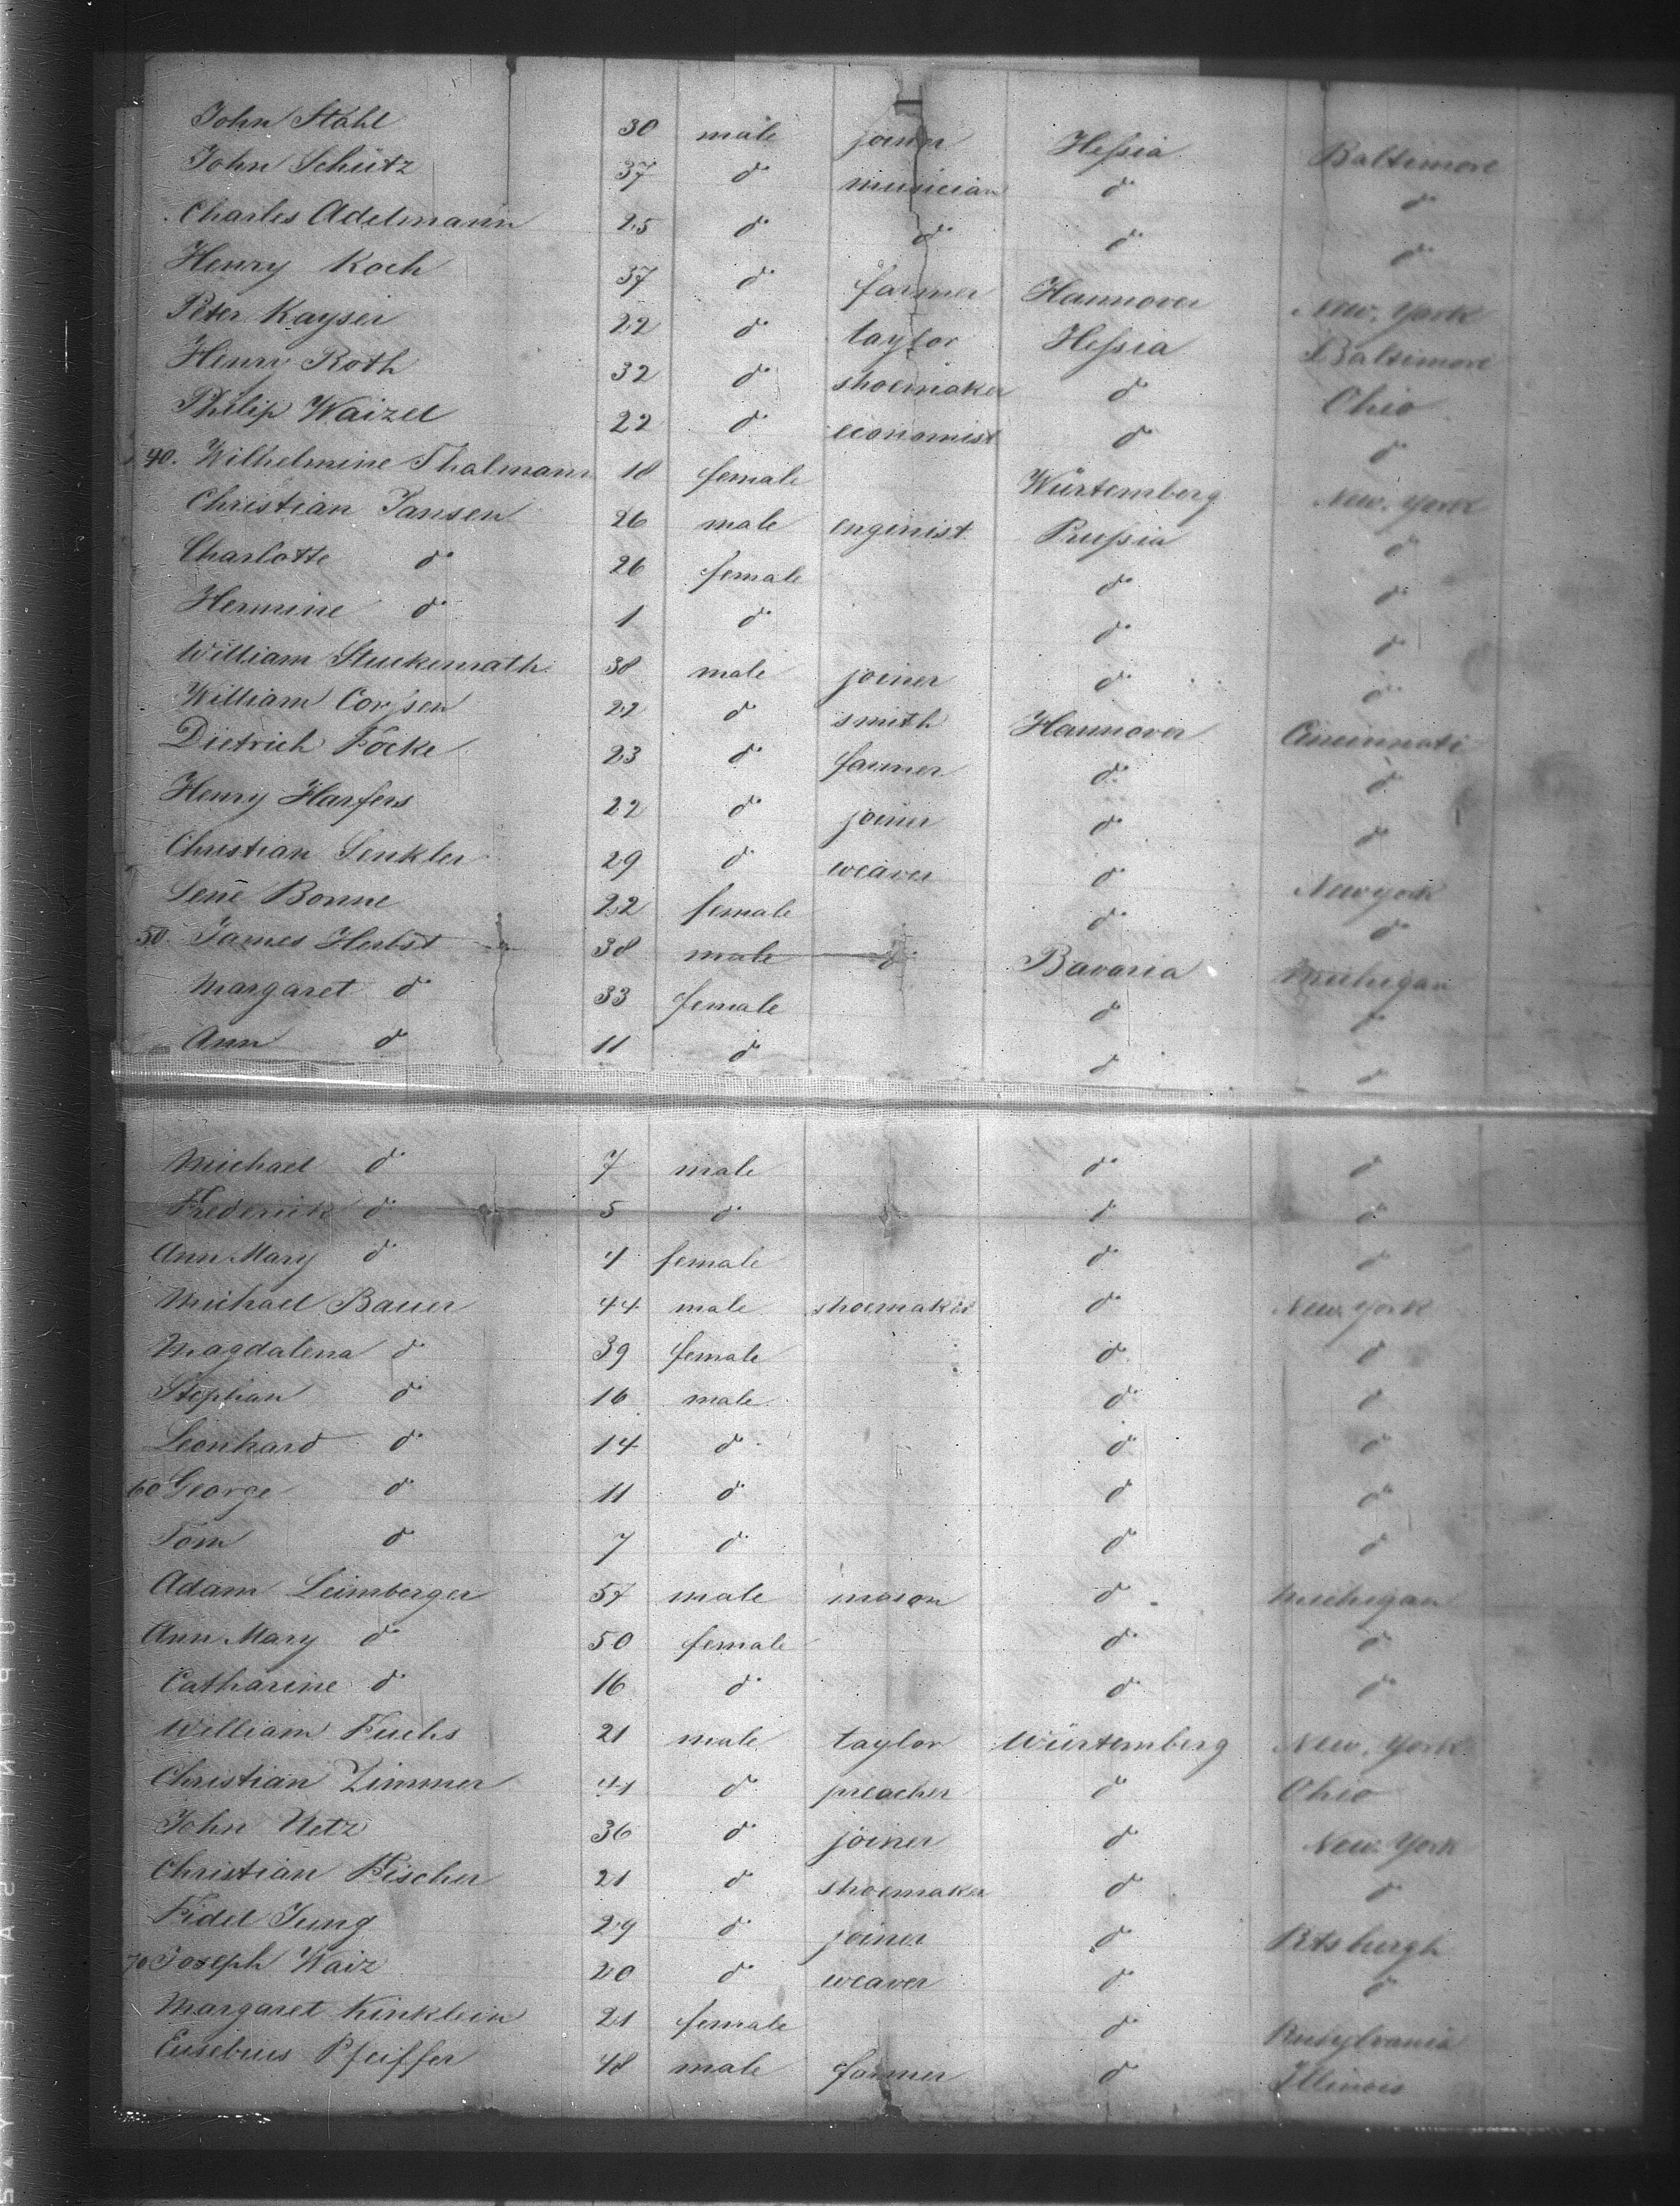 John Stahl 30 male joiner Hessia Baltimore
John Schütz 37 do musician do do
Charles Adelmann 25 do do do do
Henry Koch 37 do farmer Hannover New-York
Peter Kayser 22 do taylor Hessia Baltimore
Henry Roth 32 do shoemaker do Ohio
Philip Waizel 22 do economist do do
40. Wilhelmine Thalmann 18 female Würtemberg New-York
Christian Jansen 26 male enginist Prussia do
Charlotte do 26 female do do
Hermine do 1 do do do
William Stuckenrath 38 male joiner do do
William Corssen 22 do smith Hannover Cincinnati
Dietrich Focke 23 do farmer do do
Henry Harfers 22 do joiner do do
Christian Senkler 29 do weaver do Newyork
Lene Bonne 22 female do do
50. James Herbst 38 male do Bavaria Michigan
Margaret do 33 female do do
Ann do 11 do do do
Michael do 7 male do do
Frederick do 5 do do do
Ann Mary do 4 female do do
Michael Bauer 44 male shoemaker do New-York
Magdalena do 39 female do do
Stephan do 16 male do do
Leonhard do 14 do do do
60 George do 11 do do do
Tom do 7 do do do
Adam Leimberger 57 male mason do Michigan
Ann Mary do 50 female do do
Catharine do 16 do do do
William Fuchs 21 male taylor Würtemberg New-York
Christian Zimmer 41 do preacher do Ohio
John Netz 36 do joiner do New-York
Christian Fischer 21 do shoemaker do do
Fidel Jung 29 do joiner do Pitsburgh
70 Joseph Waiz 20 do weaver do do
Margaret Kinklein 21 female do Pensylvania
Eusebius Pfeiffer 48 male farmer do Illinois